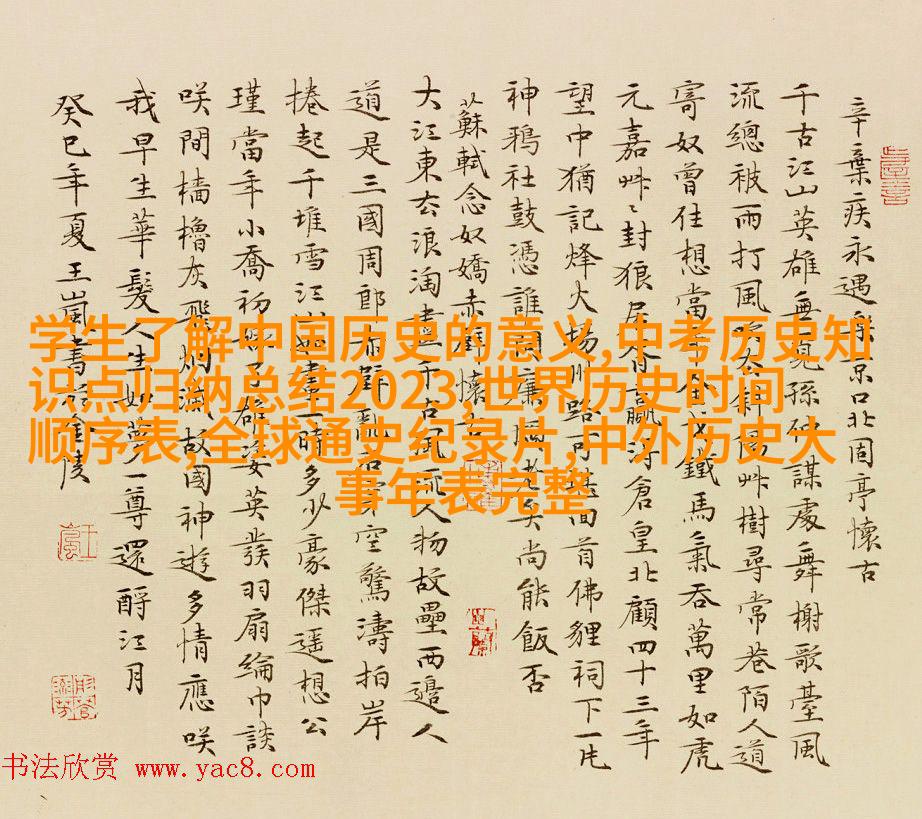 辛棄疾永遇樂京口北固亭懷古
千古江山英雄無覓孫仲謀處舞榭歌臺風
流總被雨打風吹去斜陽艸樹尋常巷陌人道
寄奴曾住想當年金戈鐵馬氣吞萬里如虎
元嘉艸〻封狼居胥贏得倉皇北顧四十三年
望中猶記烽火揚州路可堪回首佛貍祠下一片
神鴉社鼓憑誰問廉頗老矣尚能飯否
蘇軾念奴嬌赤壁懷古
大江東去浪淘盡千古風流人物故壘西邊人
道是三國周郎赤壁亂石穿空驚濤拍岸
捲起千堆雪江山如畫一時多少豪傑遥想公
瑾當年小喬初嫁了雄姿英發羽扇綸巾談
咲間檣櫓灰飛烟滅故國神遊多情應咲
我早生華髮人生如夢一尊還酹江月
癸巳年夏王嵐書於金陵
学生了解中国历史的意义,中考历史知
识点归纳总结2023,世界历史时间
顺序表,全球通史纪录片,中外历史大
事年表完整
书法欣赏 www.yac8.com